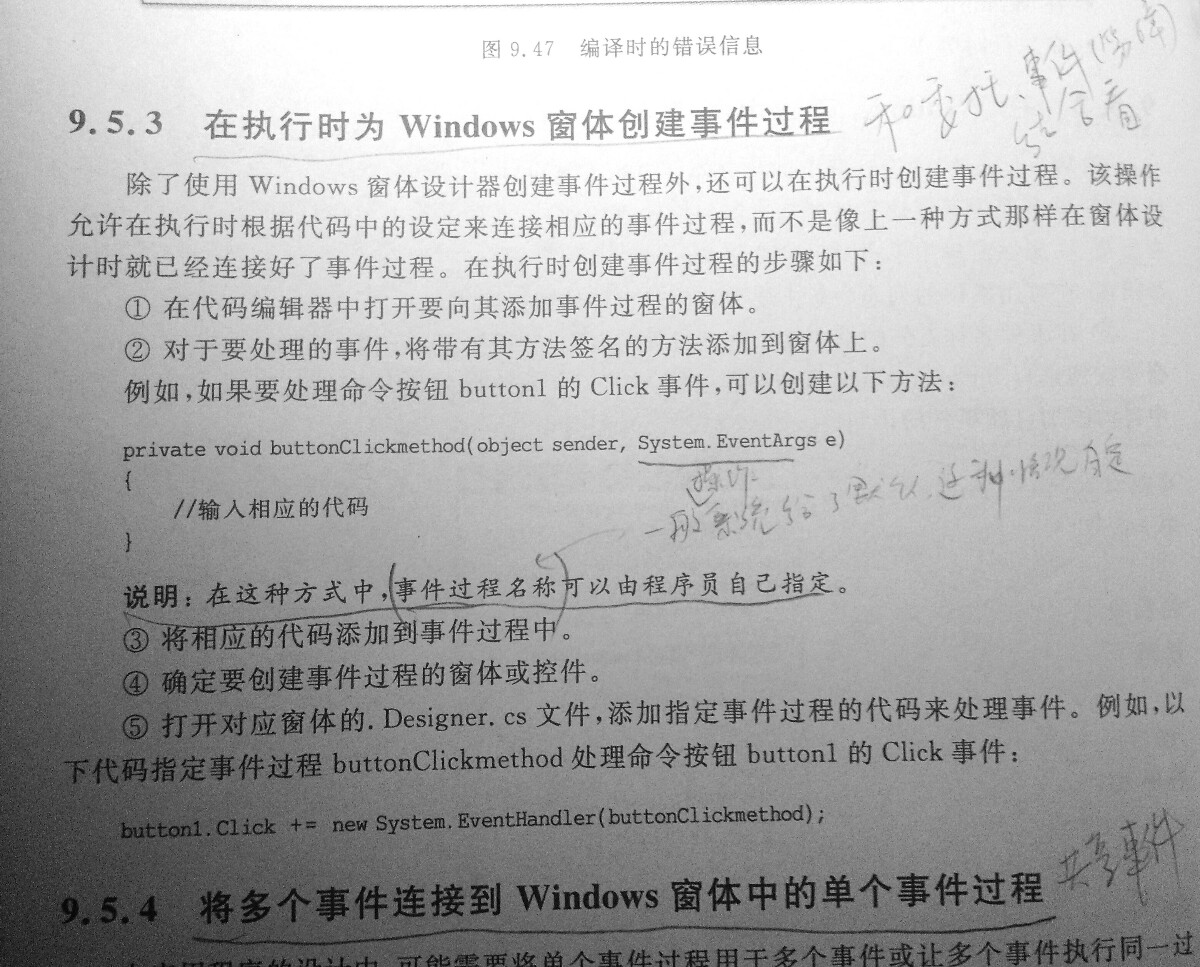 图 9.47 编译时的错误信息
和委托、事件
结合看
9.5.3 在执行时为 Windows 窗体创建事件过程
除了使用 Windows 窗体设计器创建事件过程外,还可以在执行时创建事件过程。该操作
允许在执行时根据代码中的设定来连接相应的事件过程,而不是像上一种方式那样在窗体设
计时就已经连接好了事件过程。在执行时创建事件过程的步骤如下:
① 在代码编辑器中打开要向其添加事件过程的窗体。
② 对于要处理的事件,将带有其方法签名的方法添加到窗体上。
例如,如果要处理命令按钮 button1 的 Click 事件,可以创建以下方法:
private void buttonClickmethod(object sender, System.EventArgs e)
{
//输入相应的代码
一般系统给了默认,这种情况自定
}
说明:在这种方式中,(事件过程名称)可以由程序员自己指定。
③ 将相应的代码添加到事件过程中。
④ 确定要创建事件过程的窗体或控件。
⑤ 打开对应窗体的.Designer.cs 文件,添加指定事件过程的代码来处理事件。例如,以
下代码指定事件过程 buttonClickmethod 处理命令按钮 button1 的 Click 事件:
button1.Click += new System.EventHandler(buttonClickmethod);
共享事件
9.5.4 将多个事件连接到 Windows 窗体中的单个事件过程
可能需要将单个事件过程用于多个事件或让多个事件执行同一过